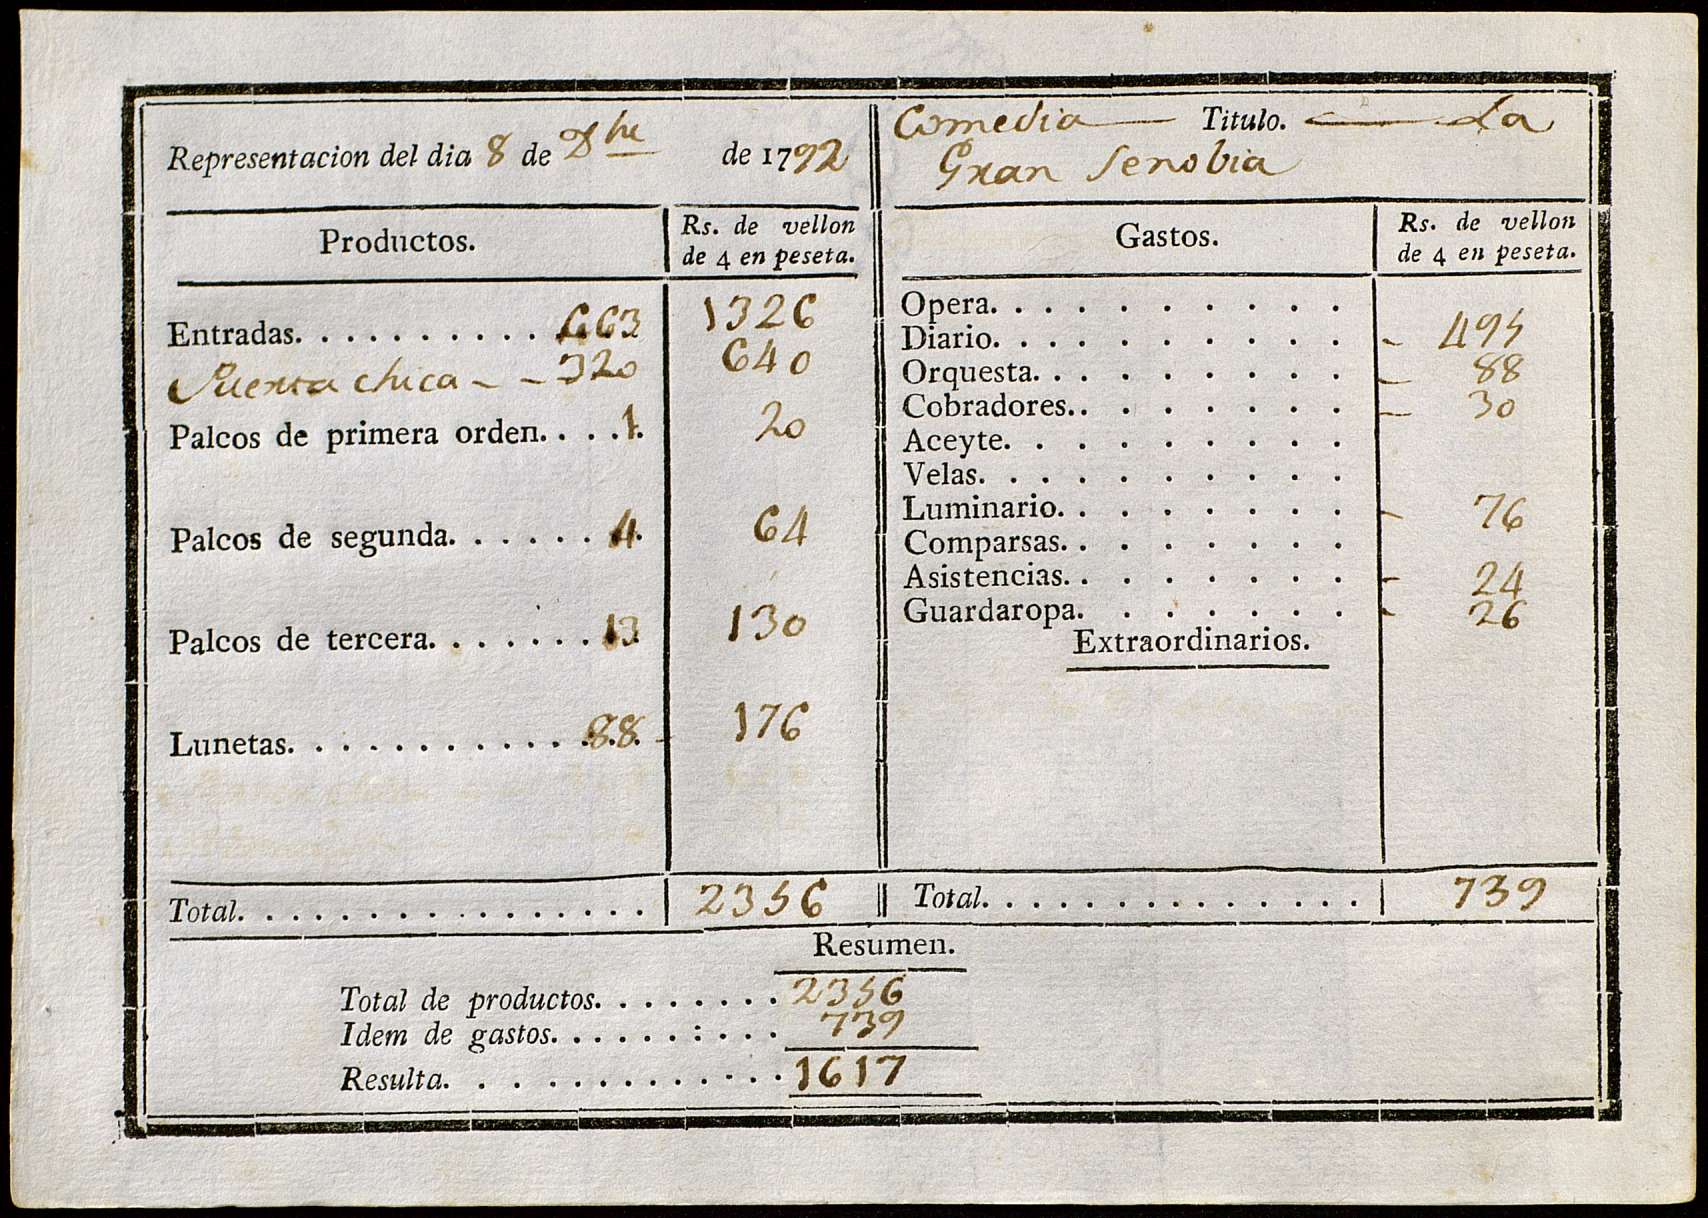 Representacion del dia 8 de de 1792
Comedia Titulo. La
Gran Senobia
Productos.
Rs. de vellon
de 4 en peseta.
Entradas. 663 1326
Puerta chica 320 640
Palcos de primera orden. 1 20
Palcos de segunda. 4 64
Palcos de tercera. 13 130
Lunetas. 88 176
Total. 2356
Gastos.
Rs. de vellon
de 4 en peseta.
Opera.
Diario. 495
Orquesta. 88
Cobradores. 30
Aceyte.
Velas.
Luminario. 76
Comparsas.
Asistencias. 24
Guardaropa. 26
Extraordinarios.
Total. 739
Resumen.
Total de productos. 2356
Idem de gastos. 739
Resulta. 1617